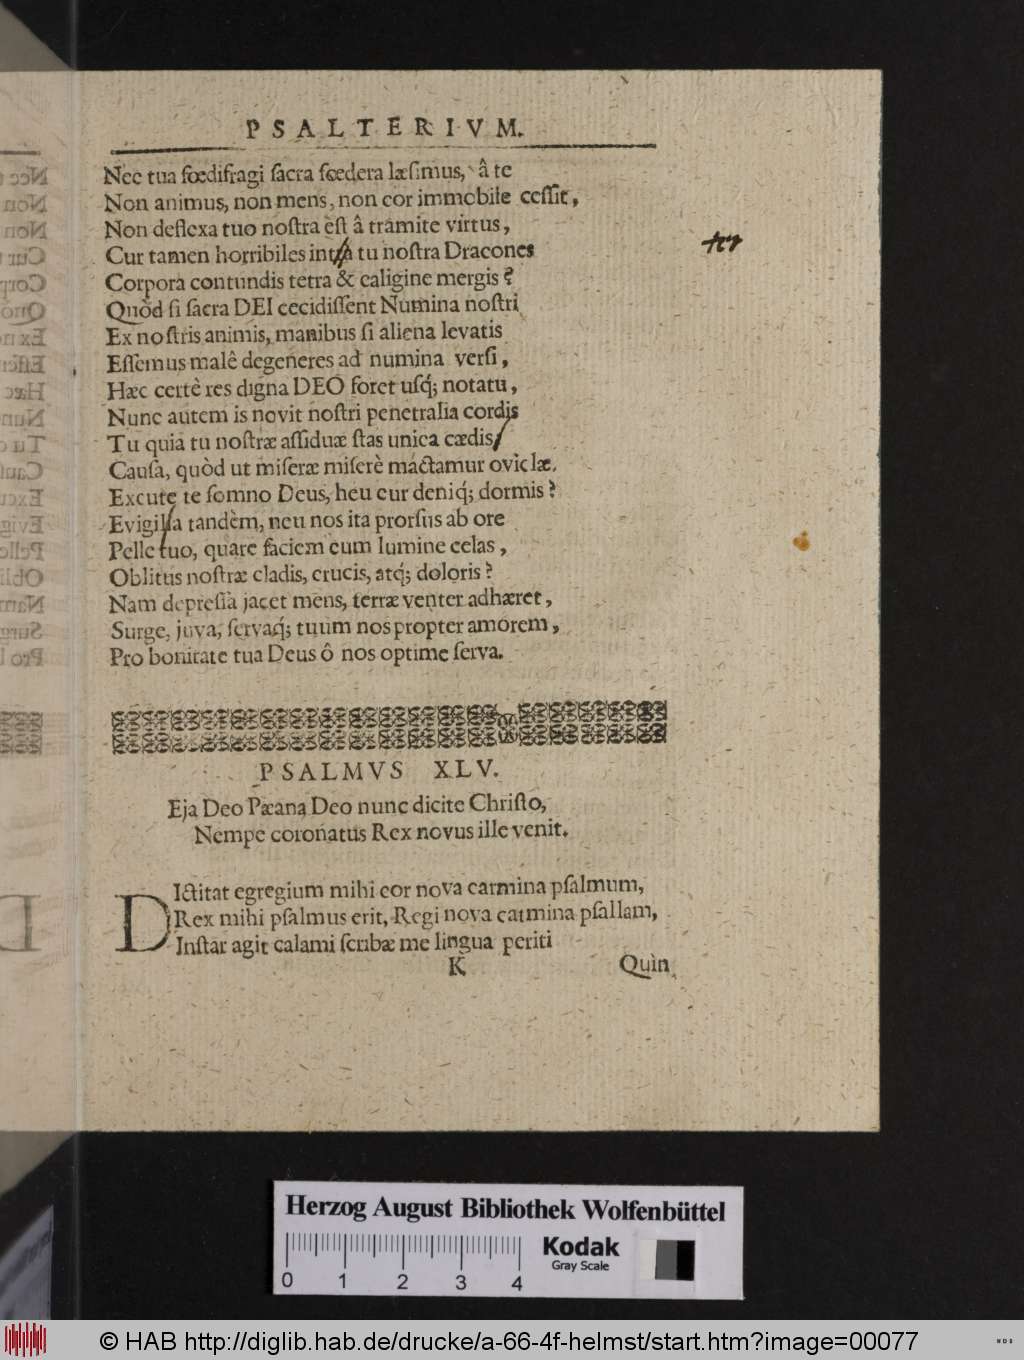 PSALTERIVM.
Nec tua fœdifragi ſacra fœdera læſimus, â te
Non animus, non mens, non cor immobile ceſſit,
Non deflexa tuo noſtra eſt â tramite virtus,
Cur tamen horribiles intra tu noſtra Dracones
Corpora contundis tetra & caligine mergis?
Quòd ſi ſacra DEI cecidiſſent Numina noſtri
Ex noſtris animis, manibus ſi aliena levatis
Eſſemus malê degeneres ad numina verſi,
Hæc certè res digna DEO foret uſq́; notatu,
Nunc autem is novit noſtri penetralia cordis
Tu quia tu noſtræ aſſiduæ ſtas unica cædis
Cauſa, quòd ut miſeræ miſerè mactamur oviclæ.
Excute te ſomno Deus, heu cur deniq́; dormis?
Evigila tandèm, neu nos ita prorſus ab ore
Pelle tuo, quare faciem cum lumine celas,
Oblitus noſtræ cladis, crucis, atq́; doloris?
Nam depreſſa jacet mens, terræ venter adhæret,
Surge, juva, ſervaq́; tuum nos propter amorem,
Pro bonitate tua Deus ô nos optime ſerva.
PSALMVS XLV.
Eja Deo Pæana Deo nunc dicite Chriſto,
Nempe coronatus Rex novus ille venit.
DIctitat egregium mihi cor nova carmina pſalmum,
Rex mihi pſalmus erit, Regi nova carmina pſallam,
Inſtar agit calami ſcribæ me lingua periti
K Quin
Herzog August Bibliothek Wolfenbüttel
0 1 2 3 4
Kodak
Gray Scale
© HAB http://diglib.hab.de/drucke/a-66-4f-helmst/start.htm?image=00077